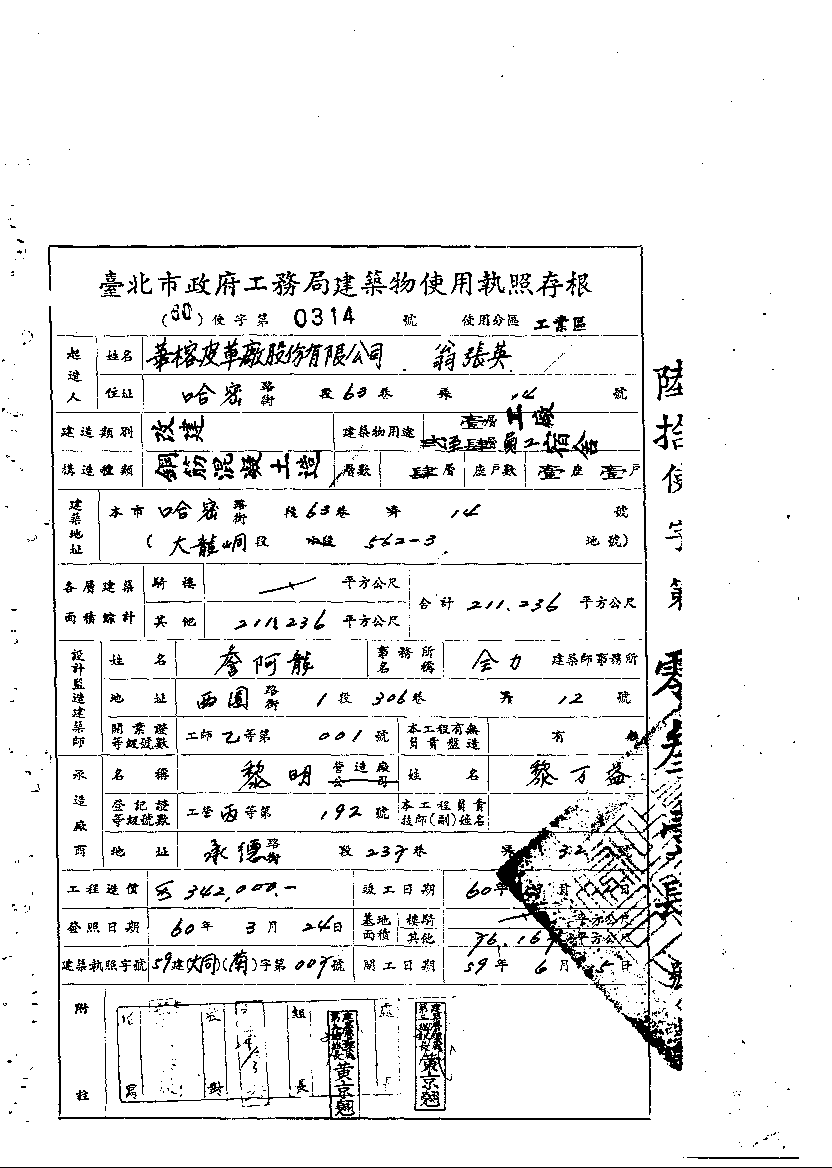 臺北市政府工務局建築物使用執照存根
(60)使字第 0314 號 使用分區 工業區
起造人 姓名 華榕皮革廠股份有限公司 翁張英
住址 哈密路街 段63巷 弄 14 號
建造類別 改建 建築物用途 壹層工廠 貳至肆層員工宿舍
構造種類 鋼筋混凝土造 層數 肆層 座戶數 壹座 壹戶
建築地址 本市 哈密路街 段63巷 弄 14 號
(大龍峒段 小段 562-3 地號)
各層建築面積綜計 騎樓 平方公尺 合計 211.236 平方公尺
其他 211.236 平方公尺
設計監造建築師 姓名 詹阿龍 事務所名稱 全力 建築師事務所
地址 西園路街 1段306巷 弄 12 號
開業證等級號數 工師乙等第 001號 本工程有無負責監造 有
承造廠商 名稱 黎明 營造廠公司 姓名 黎万益
登記證等級號數 工營丙等第 192 號 本工程負責技師(副)姓名
地址 承德路街 段237巷 弄 32
工程造價 342,000.- 竣工日期 60年 月 日
發照日期 60年 3月 24日 基地面積 樓騎 平方公尺
其他 平方公尺
建築執照字號 59建(大同)(蘭)字第007號 開工日期 59年 6月 5日
附註
組長
黃京翹
黃京翹
陸拾使字第零叁